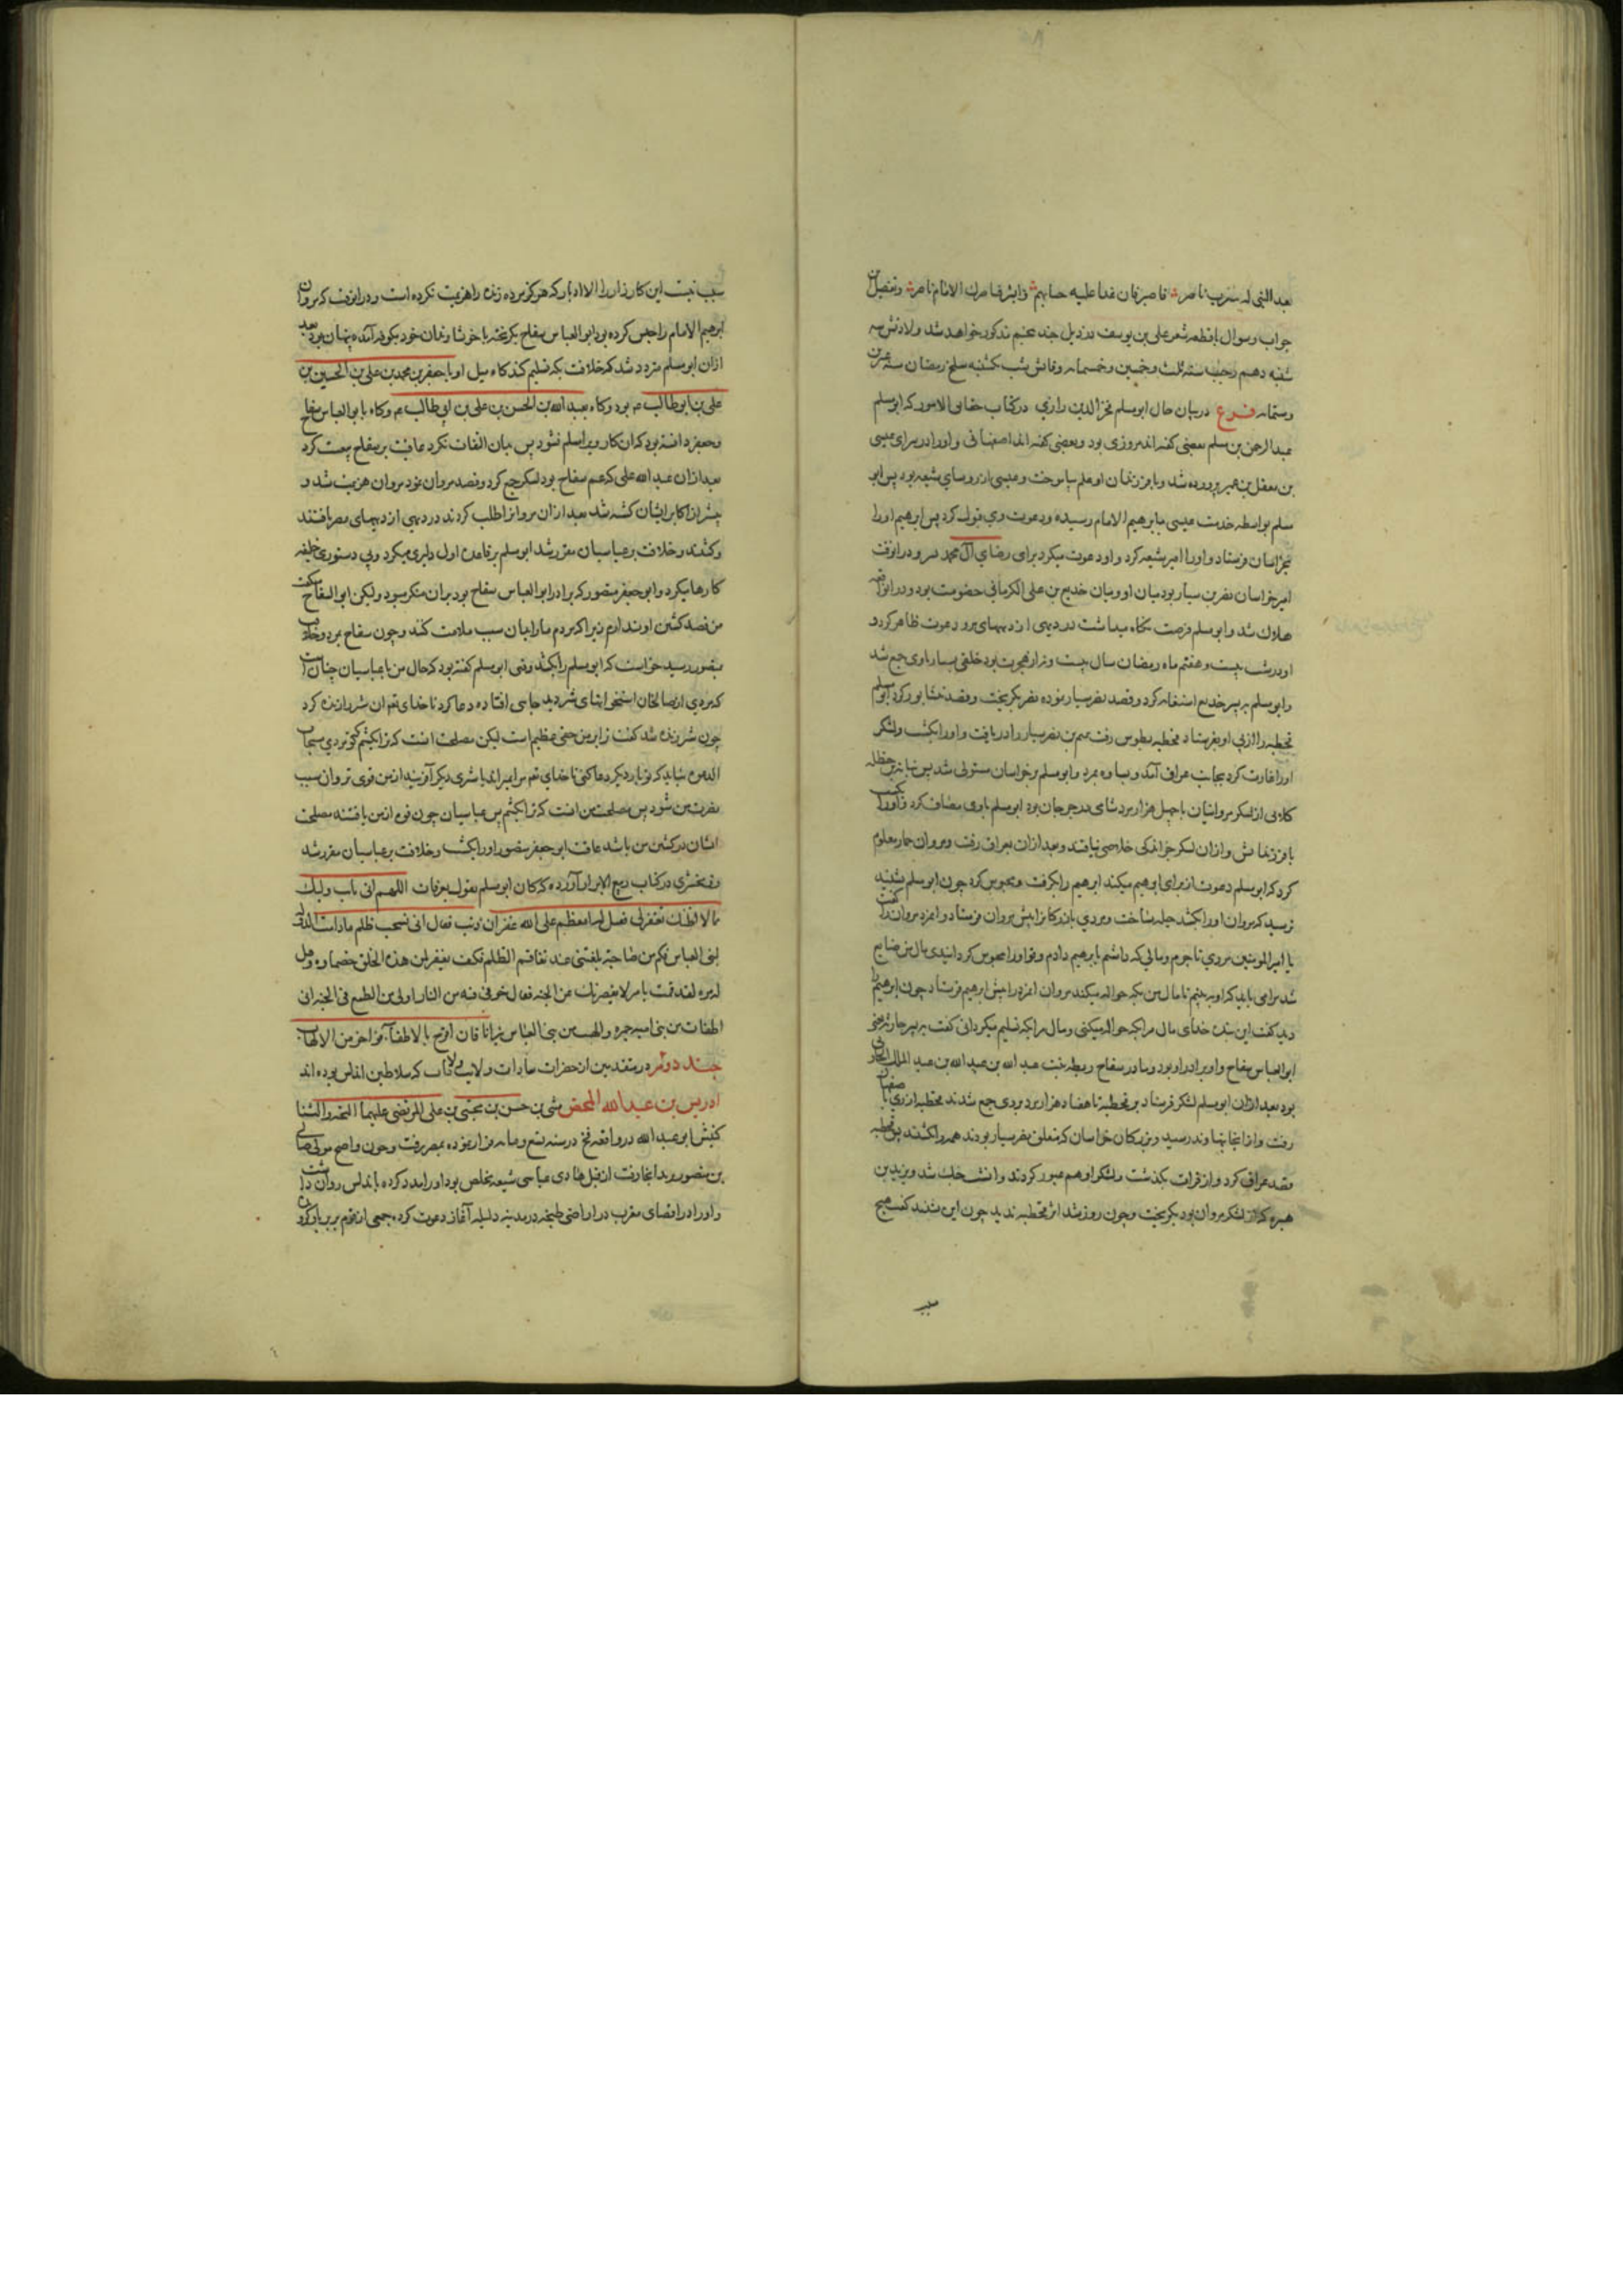 بعد النبی له یثرب ناصر فاصبر فان غدا علیه حسابهم وابشر فناصرك الامام الناصر وتفصیل این
جواب وسوال با قطعه شعر علی بن یوسف در ذیل جند پنجم مذکور خواهد شد ولادتش سه
شنبه دهم رجب سنه ثلث وخمسین وخمسمایه وفاتش شب یکشنبه سلخ رمضان سنه عشرین
وستمایه فرع در بیان حال ابو مسلم فخر الدین رازی در کتاب حقایق الامور که ابو مسلم
عبد الرحمن بن مسلم بعضی گفته اند مروزی بود وبعضی گفته اند اصفهانی واو را در سرای عیسی
بن معقل بن عمیر پرورده شد وبا فرزندان او علم بیاموخت وعیسی از روسای شیعه بود پس ابو
مسلم بواسطه خدمت عیسی بابرهیم الامام رسیده ودعوت وی قبول کرد پس ابرهیم او را
بخراسان فرستاد واو را امیر شیعه کرد واو دعوت میکرد برای رضای آل محمد ودر انوقت
امیر خراسان نصر بن سیار بود میان او ومیان خدیع بن علی الکرمانی خصومت بود ودر انواقعه
هلاك شد وابو مسلم فرصت نگاه میداشت در دیهی از دیهای مرو دعوت ظاهر کرد و
او در شب بیست وهفتم ماه رمضان سال بیست ونه از هجرت بود خلقی بسیار باوی جمع شد
وابو مسلم بر پسر خدیع استغاثه کرد وقصد نصر سیار نموده نصر بگریخت وقصد نشابور کرد ابو مسلم
قحطبه را از پی او بفرستاد قحطبه بطوس رفت تمیم بن نصر سیار را دریافت واو را بکشت ولشکر
او را غارت کرد بجانب عراق آمد وبساوه بمرد وابو مسلم بر خراسان مستولی شد پس نباته بن حنظله
کلابی از لشکر مروانیان با چهل هزار مرد شامی در جرجان بود ابو مسلم باوی مصاف کرد واو را بکشت
با فرزندانش وازان لشکر جز اندکی خلاصی نیافتند وبعد ازان بعراق رفت ومروان حمار معلوم
کرد که ابو مسلم دعوت از برای ابرهیم میکند ابرهیم را بگرفت ومحبوس کرد چون ابو مسلم بشنید
ترسید که مروان او را بکشد حیله ساخت ومردی بازرگانرا پیش مروان فرستاد وانمرد مروان را گفت
یا امیر المومنین مردی تاجرم ومالی که داشتم بابرهیم دادم وتو او را محبوس کردانیدی مال من ضایع
شد مرا می باید که او ببینم تا مال من بکه حواله میکند مروان انمرد را پیش ابرهیم فرستاد چون ابرهیم را
دید گفت این بنده خدای مال مرا بکه حواله میکنی ومال مرا بکه تسلیم میکردانی گفت به پسر حارثیه یعنی
ابو العباس سفاح واو برادر او بود ومادر سفاح ریطه بنت عبد الله بن عبد الله بن عبد الملك الحارثی
بود بعد ازان ابو مسلم لشکر فرستاد بر قحطبه تا هفتاد هزار مرد بروی جمع شدند قحطبه از ری باصفهان
رفت وازانجا بنهاوند رسید وبزرگان خراسان که متعلق نصر سیار بودند همه را بکشتند پس قحطبه
قصد عراق کرد واز فرات بگذشت ولشکر او هم عبور کردند وانشب جنك شد ویزید بن
هبیره که از لشکر مروان بود بگریخت وچون روز شد اثر قحطبه ندید چون این شنید گفت هیچ
سبب نیست این کارزار را الا ادبار که هرگز مرده زنده را هزیمت نکرده است ودر انوقت که مروان
ابرهیم الامام را حبس کرده بود ابو العباس سفاح بگریخته با خویشاوندان خود بکوفه آمده پنهان بود بعد
ازان ابو مسلم متردد شد که خلافت بکه تسلیم کند گاه میل او با جعفر بن محمد بن علی بن الحسین بن
علی بن ابو طالب م بود وگاه بعبد الله بن الحسن بن علی بن ابی طالب م وگاه بابو العباس سفاح
وجعفر دانسته بود که ان کار ویرا مسلم نشود پس بدان التفات نکرد عاقبت بر سفاح بیعت کرد
بعد ازان عبد الله علی که عم سفاح بود لشکر جمع کرد وقصد مروان نمود مروان هزیمت شد و
بیشتر از اکابر ایشان کشته شد بعد ازان مروانرا طلب کردند در دیهی از دیهای مصر یافتند
وبکشتند وخلافت بر عباسیان مقرر شد ابو مسلم بر قاعده اول دلیری میکرد وبی دستوری خلیفه
کارها میکرد وابو جعفر منصور که برادر ابو العباس سفاح بود بران منکر میبود ولیکن ابو السفاح میگفت
من قصد کشتن او ندارم زیرا که مردم ما را بدان سبب ملامت کنند وچون سفاح بمرد وخلافت
بمنصور رسید خواست که ابو مسلم را بکشد وقتی ابو مسلم گفته بود که حال من با عباسیان چنان است
که مردی از صالحان استخوانهای شیر دید جایی افتاده دعا کرد تا خدای تعم ان شیر را زنده کرد
چون شیر زنده شد گفت ترا بر من حقی عظیم است لیکن مصلحت انست که ترا بکشم که تو مردی مستجاب
الدعوه شاید که تو بار دیگر دعا کنی تا خدای تعم مرا بمیراند یا شیری دیگر آفریند از من قوی تر وان سبب
مضرت من شود پس مصلحت من انست که ترا بکشم پس عباسیان چون قوه از من یافتند مصلحت
ایشان در کشتن من باشد عاقبت ابو جعفر منصور او را بکشت وخلافت بر عباسیان مقرر شد
وزمخشری در کتاب ربیع الابرار آورده که کان ابو مسلم یقول بعرفات اللهم انی تایب الیك
مما لا اظنك تغفر لی فقیل له افیعظم علی الله غفران ذنب فقال انی نسجت ظلم ما دامت الدوله
لبنی العباس فکم من صارخة یلعننی عند تفاقم الظلم فکیف یغفر لمن هذه الخلق خصماوه وقیل
له مره لقد قمت بامر لا یقصر بك عن الجنه فقال خوفی فیه من النار اولی من الطمع فی الجنه انی
اطفات من بنی امیه جمره والهبت من بنی العباس نیرانا فان افرح بالاطفاء فواحزن من الالهاب
جند دوم در متقدمین از حضرات سادات ولایت مآب که سلاطین اندلس بوده اند
ادریس بن عبد الله المحض مثنی بن حسن بن مجتبی بن علی المرتضی علیهما التحیه والثنا
کنیتش ابو عبد الله در واقعه فخ در سنه تسع ومایه فرار نموده بمصر رفت وچون واضح مولی صالح
بن منصور برید انجا رفت از قبل هادی عباسی شیعه مخلص بود او را مدد کرده باندلس روان داشت
واو را در اقصای مغرب در اراضی طنجه در مدینه دلیله آغاز دعوت کرده جمعی از قوم بربر با او گرویدن